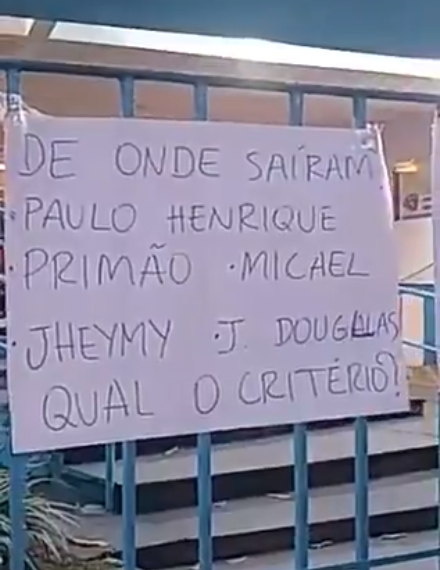 DE ONDE SAÍRAM
• PAULO HENRIQUE
• PRIMÃO • MICAEL
• JHEYMY • J. DOUGALAS
QUAL O CRITÉRIO?